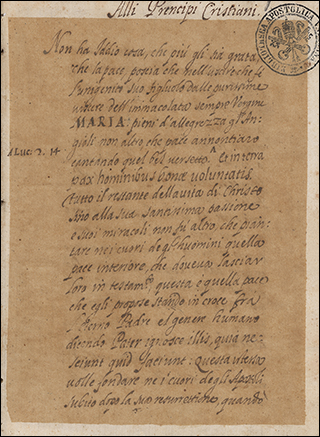 Alli Prencipi Cristiani.
BIBLIOTHECA APOSTOLICA
Non ha Iddio cosa, che più gli sia grata
che la pace, poscia che nell'usire che fe
l'umanità suo figliolo dalle purissime
viscere dell'immacolata sempre Vergine
MARIA: pieni d'allegrezza gl'An
gioli non altro che pace annontiaro
cantando quel bel versetto A Et in terra
A Luc. 2. 14
pax hominibus bona voluntatis.
Tutto il restante della vita di Christo
sino alla sua Santissima passione
e suoi miracoli non fu altro che pian
tare nei cuori degl'huomini quella
pace interiore, che doueua lasciar
loro in testamto. questa è quella pace
che egli propose stando in croce fra
Padre el genere humano
dicendo Pater ignosce illis, quia ne
sciunt quid faciunt: Questa istessa
volle fondare ne i cuori degli Apostoli
subito dopo la sua resurrestione, quando